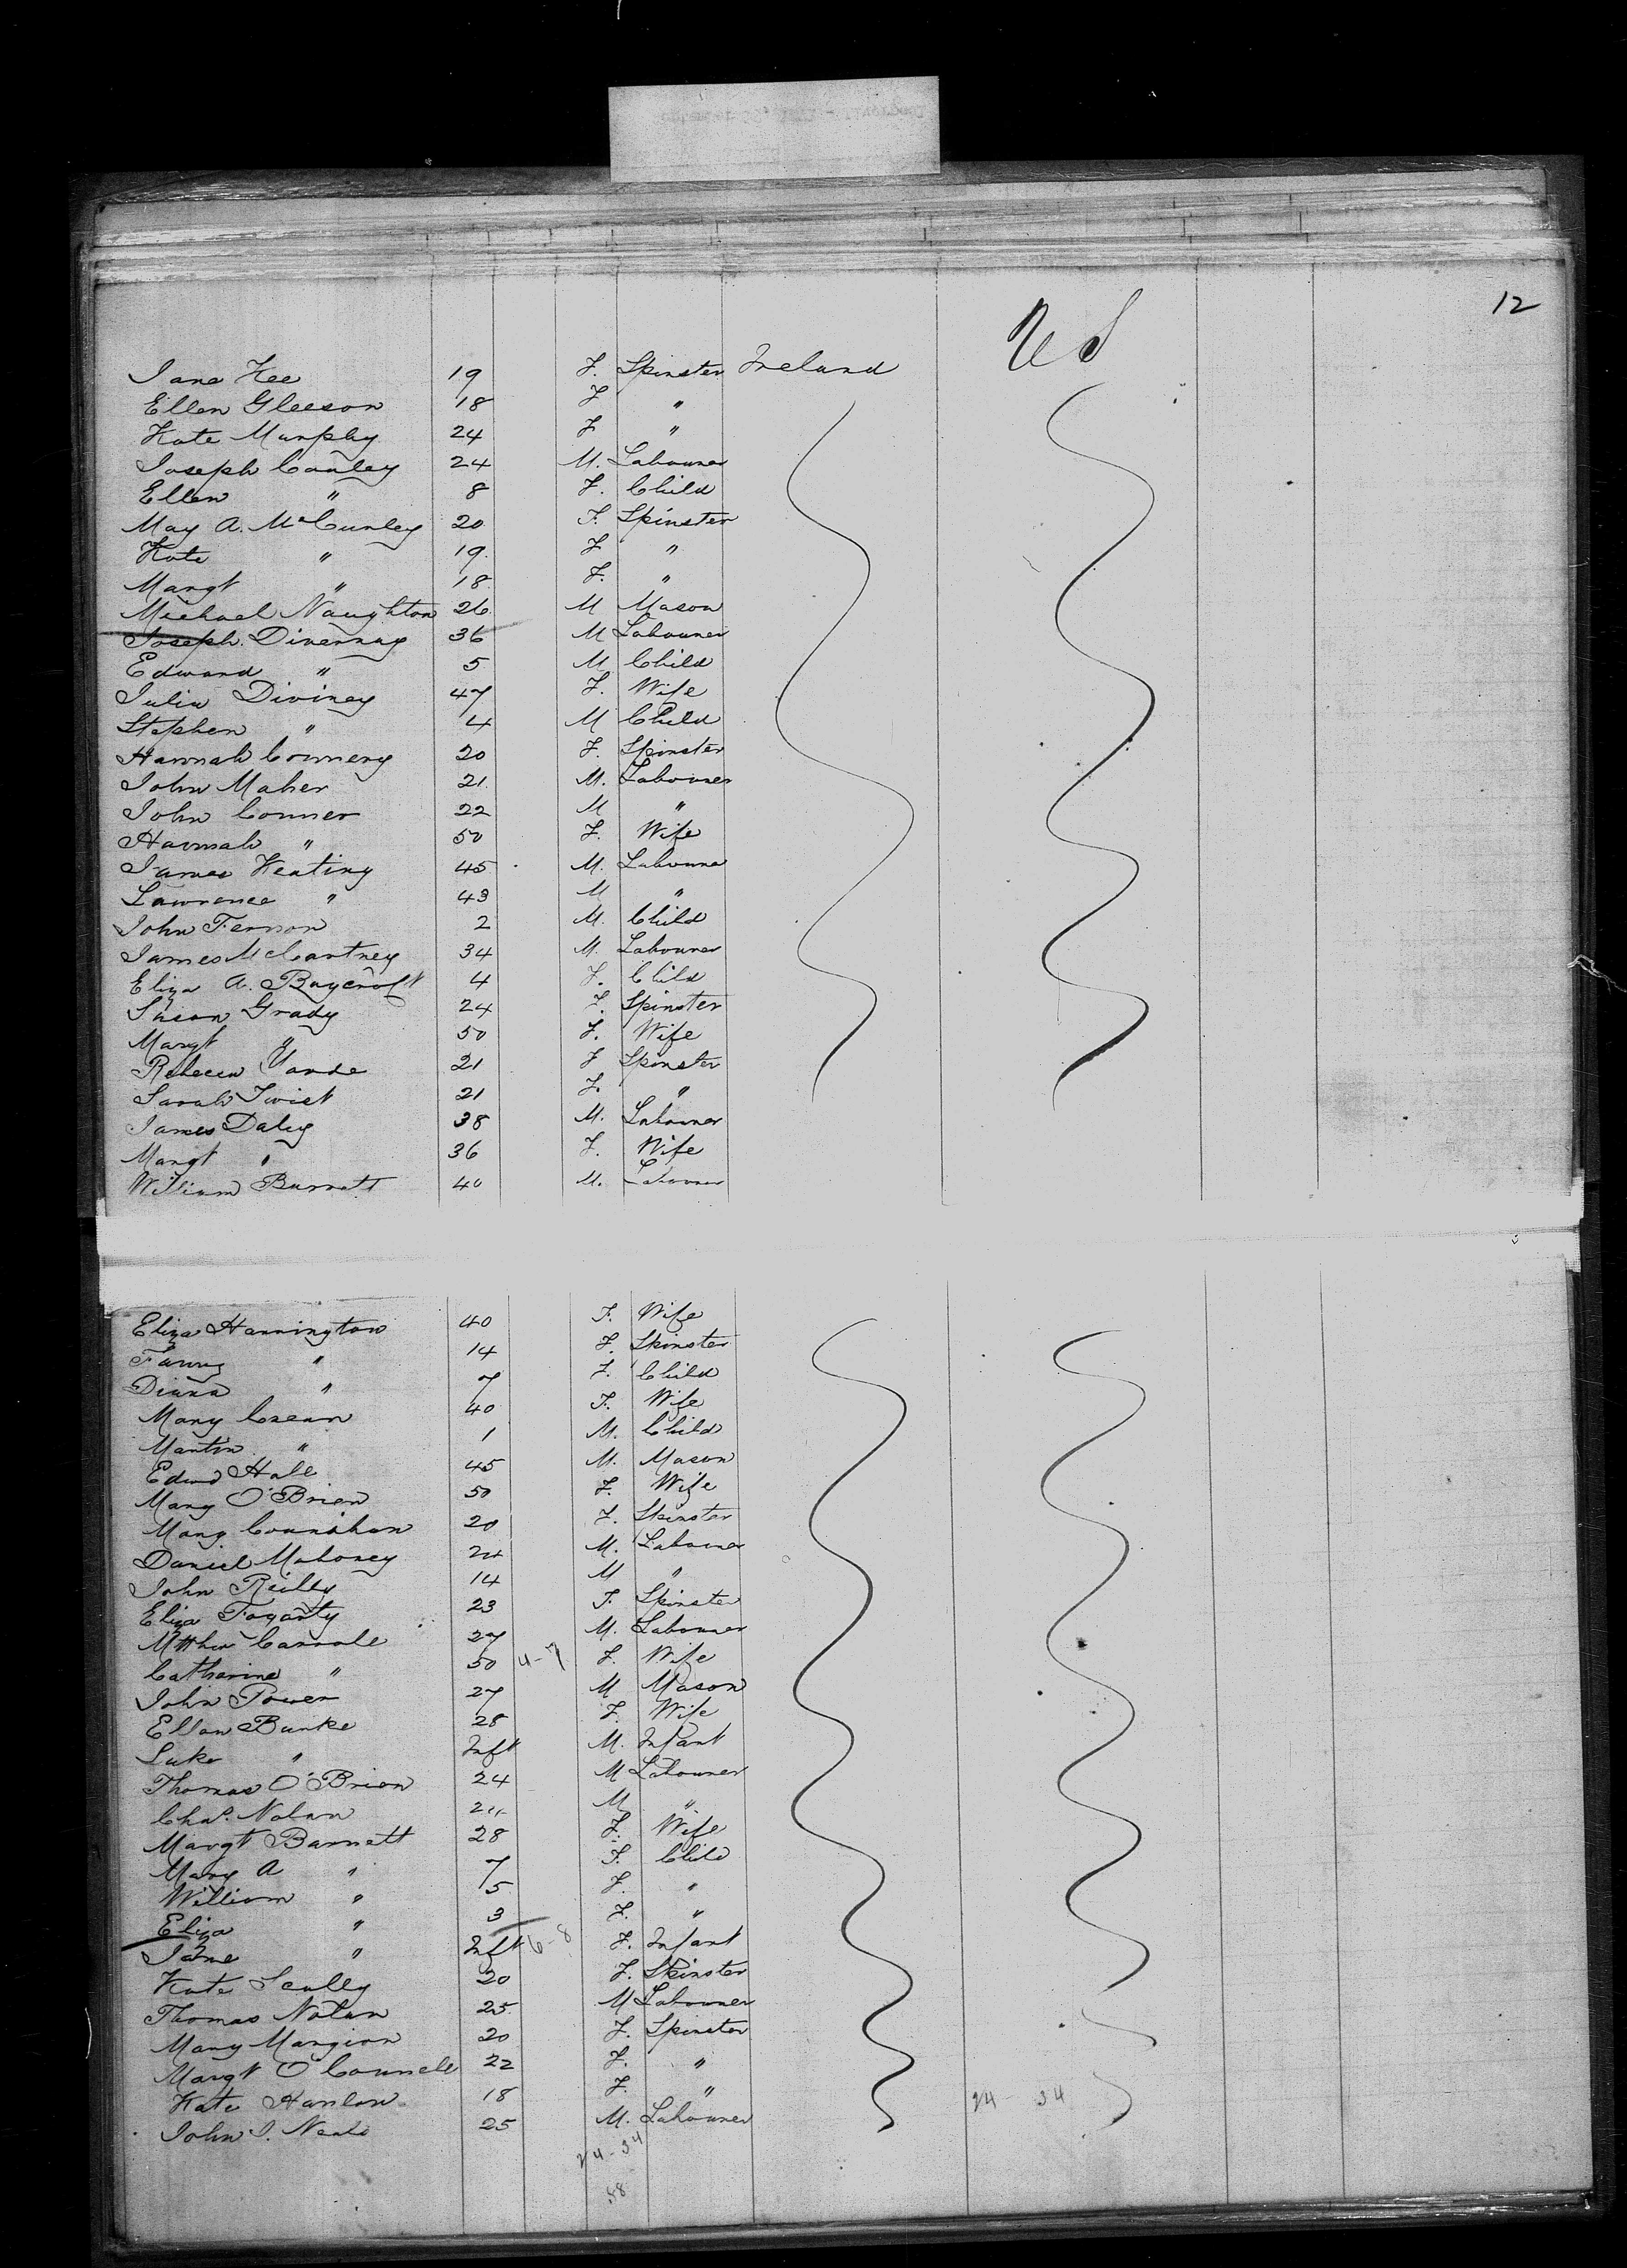 12
U S
Jane Kee 19 F. Spinster Ireland
Ellen Gleeson 18 F "
Kate Murphy 24 F "
Joseph Conley 24 M. Labourer
Ellen " 8 F. Child
May A. McCurley 20 F. Spinster
Kate " 19. F "
Margt " 18 F. "
Michael Naughton 26 M Mason
Joseph Divernay 36 M Labourer
Edward " 5 M Child
Julia Diviney 47 F. Wife
Stephen " 4 M Child
Hannah Connery 20 F. Spinster
John Maher 21. M. Labourer
John Conner 22 M "
Hannah " 50 F. Wife
James Keating 45 M. Labourer
Lawrence " 43 M "
John Fennon 2 M. Child
James McCartney 34 M. Labourer
Eliza A. Baycroft 4 F. Child
Susan Grady 24 F. Spinster
Margt " 50 F. Wife
Rebecca 21 F Spinster
Sarah Twist 21 F. "
James Daley 38 M. Labourer
Margt " 36 F. Wife
William Burnett 40 M. Labourer
Eliza Hannington 40 F. Wife
Fanny " 14 F. Spinster
Diana " 7 F. Child
Mary Crean 40 F. Wife
Martin " 1 M. Child
Edwd Hall 45 M. Mason
Mary O'Brien 50 F. Wife
Mary Counihan 20 F. Spinster
Daniel Mahoney 24 M. Labourer
John Reilly 14 M "
Eliza Fogarty 23 F. Spinster
Mtthw Carrole 27 M. Labourer
Catherine " 50 4-7 F. Wife
John Power 27 M Mason
Ellen Burke 28 F. Wife
Luke " Inft M. Infant
Thomas O'Brien 24 M Labourer
Chas. Nolan 24 M "
Margt Barnett 28 F. Wife
Mary A " 7 F. Child
William " 5 F. "
Eliza " 3 F. "
Jane " Inft 6-8 F. Infant
Kate Scully 20 F. Spinster
Thomas Nolan 25 M Labourer
Mary Mangion 20 F. Spinster
Margt O'Connell 22 F. "
Kate Hanlon 18 F. " 24-34
John J. Neale 25 M. Labourer
24-34
58